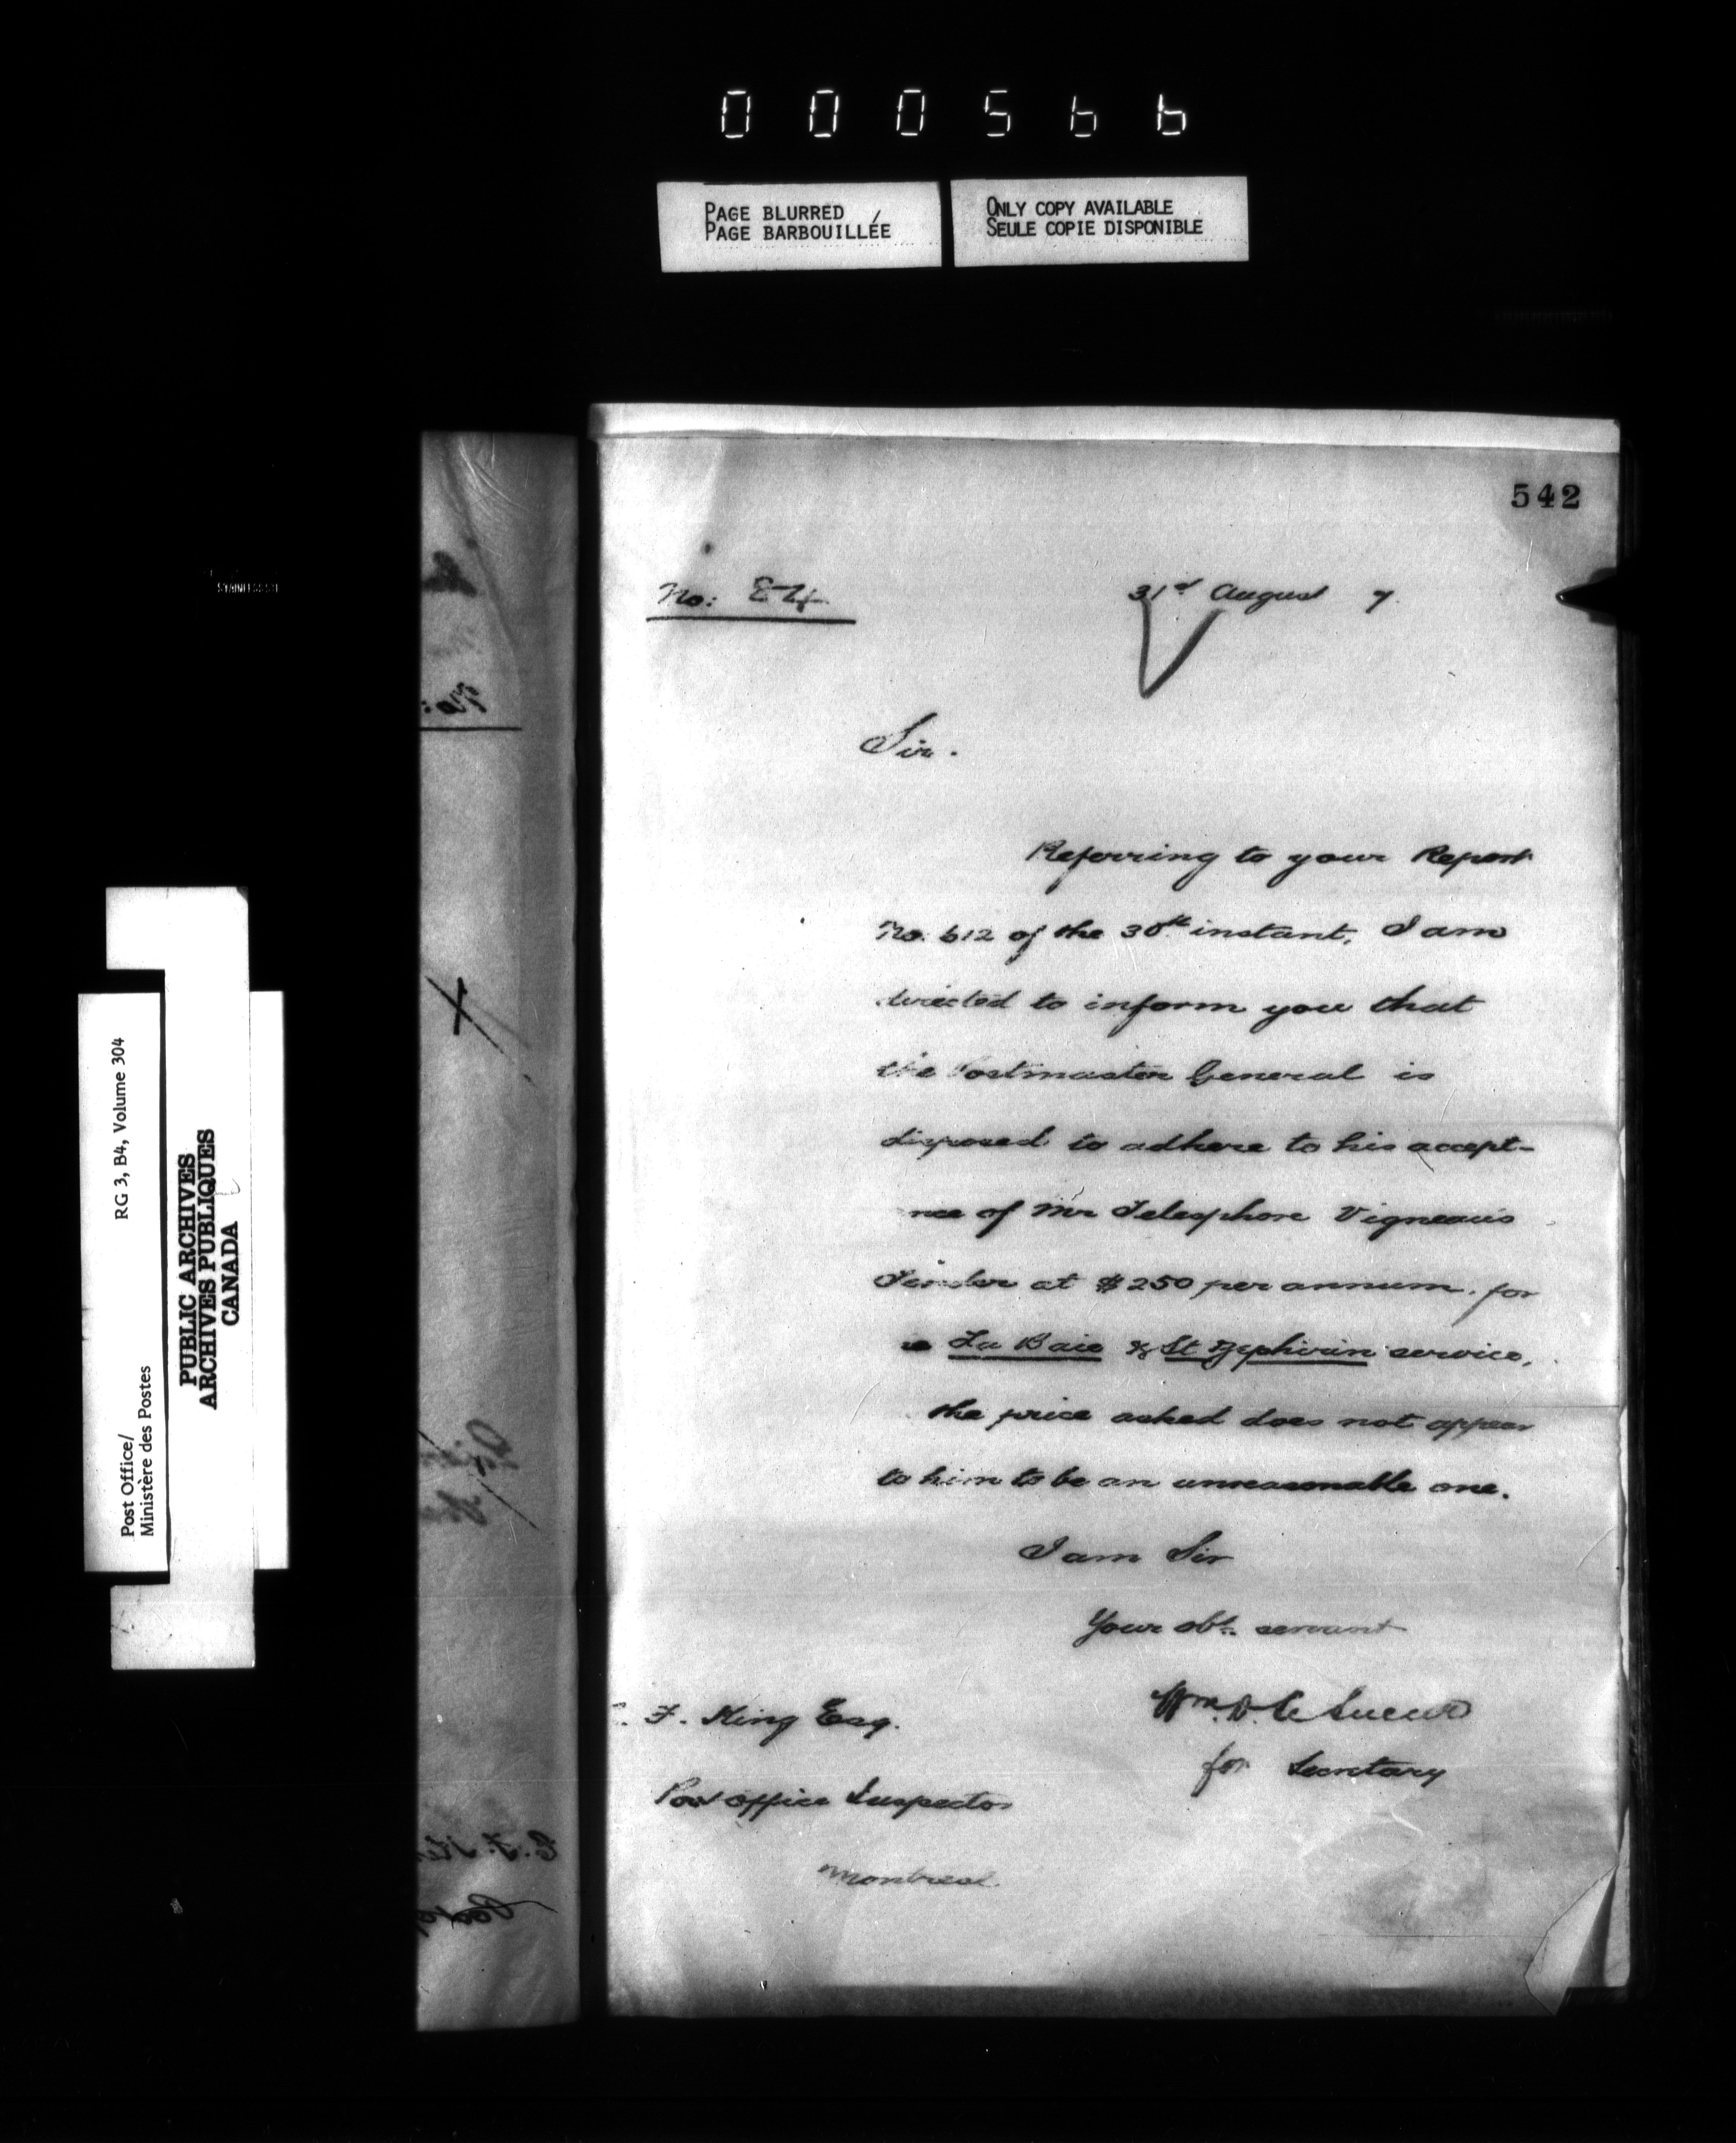 000566
PAGE BLURRED
PAGE BARBOUILLÉE
ONLY COPY AVAILABLE
SEULE COPIE DISPONIBLE
542
No:
31st August 7.
Sir.
Referring to your Report
No. 612 of the 30th instant, I am
directed to inform you that
the Postmaster General is
disposed to adhere to his accept-
nce of Mr Telesphore Vigneau's
Tender at $250 per annum, for
La Baie & St Zephirin service,
the price asked does not appear
to him to be an unreasonable one.
I am Sir
Your obt. servant
Wm. D. LeSueur
for Secretary
F. King Esq.
Post Office Inspector
Montreal
Post Office/
Ministère des Postes
RG 3, B4, Volume 304
PUBLIC ARCHIVES
ARCHIVES PUBLIQUES
CANADA